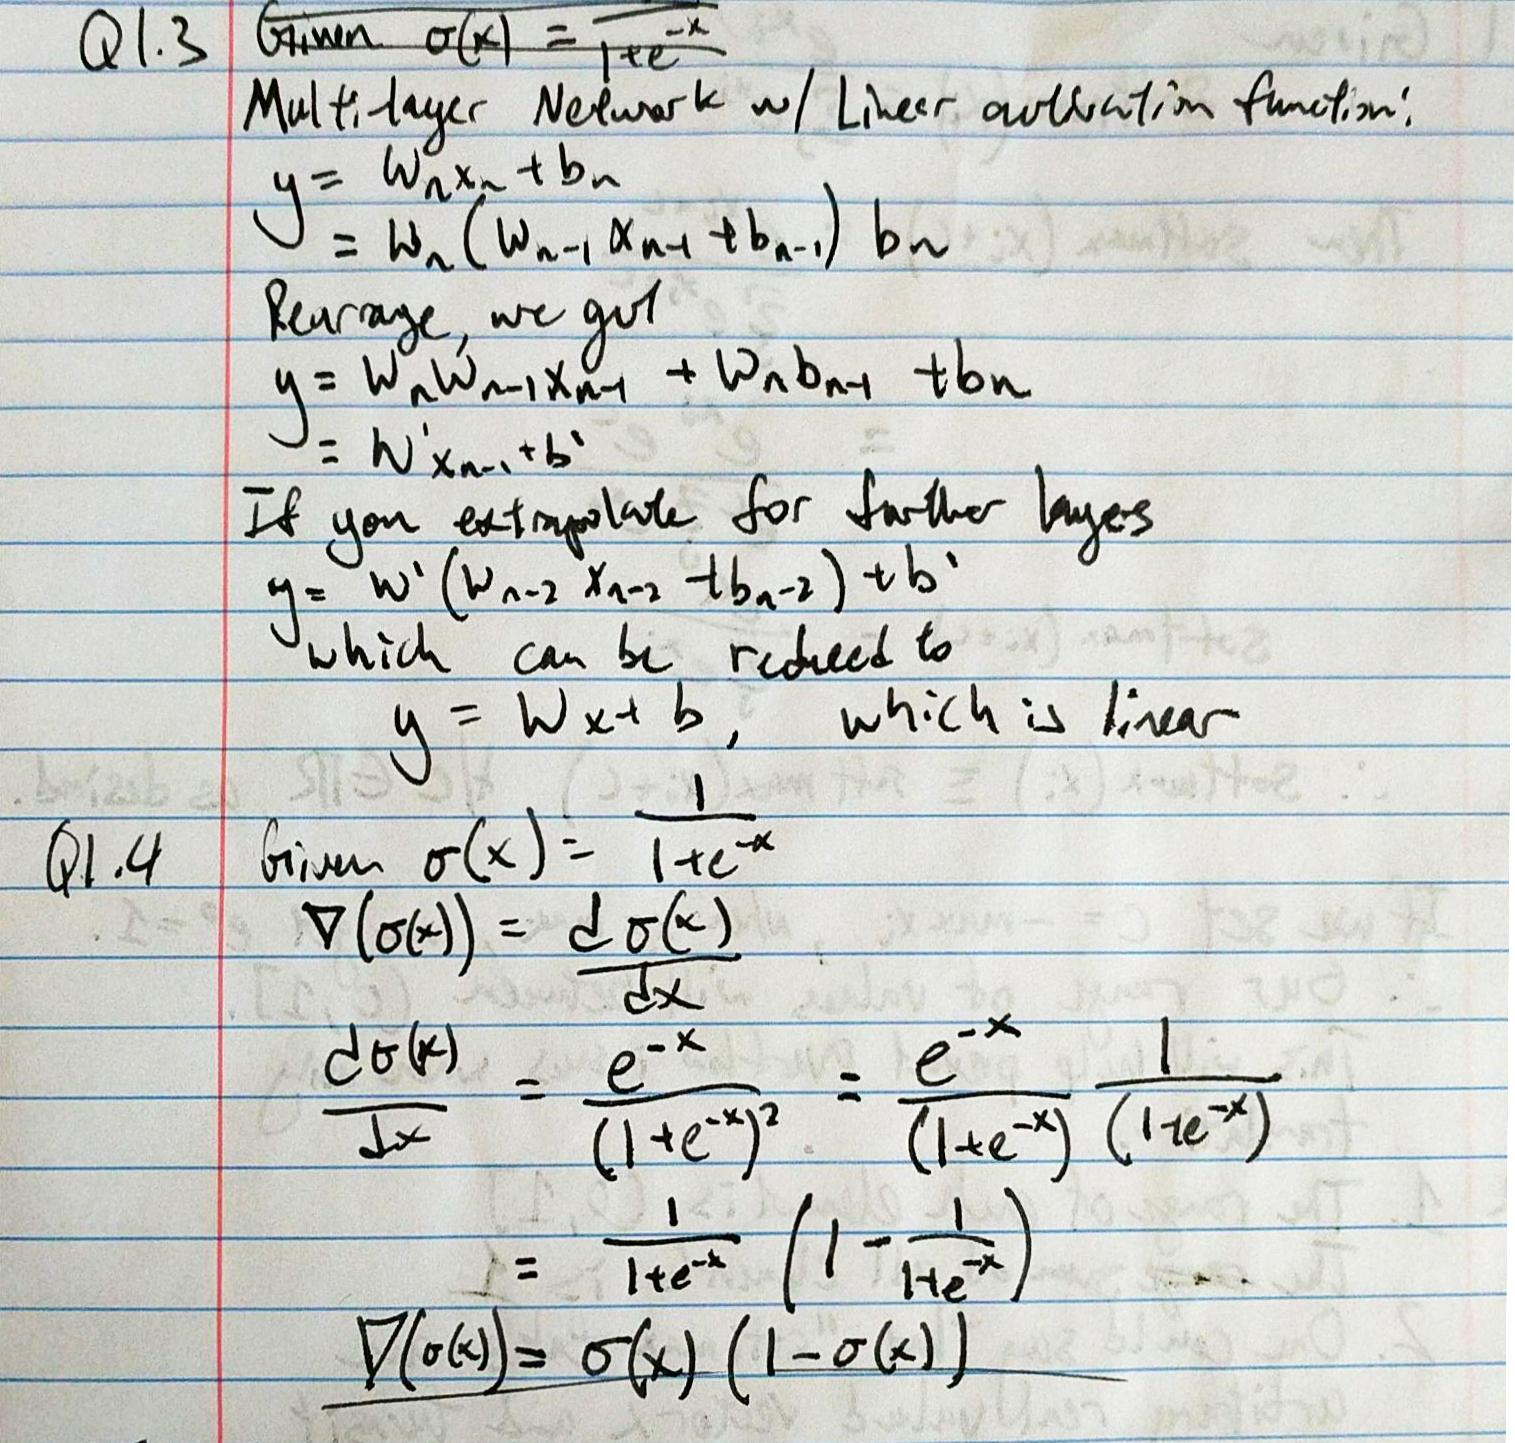 Q1.3 Given σ(x) = 1/(1+e^-x)
Multi-layer Network w/ Linear activation function:
y = Wₙxₙ + bₙ
= Wₙ(Wₙ₋₁ xₙ₋₁ + bₙ₋₁) bₙ
Rearrage, we get
y = WₙWₙ₋₁xₙ₋₁ + Wₙbₙ₋₁ + bₙ
= W'xₙ₋₁ + b'
If you extrapolate for further layes
y = W'(Wₙ₋₂ xₙ₋₂ + bₙ₋₂) + b'
which can be reduced to
y = Wx + b, which is linear
Q1.4 Given σ(x) = 1/(1+e^-x)
∇(σ(x)) = dσ(x)/dx
dσ(x)/dx = e^-x/(1+e^-x)² = e^-x/(1+e^-x) 1/(1+e^-x)
= 1/(1+e^-x) (1 - 1/(1+e^-x))
∇(σ(x)) = σ(x) (1-σ(x))